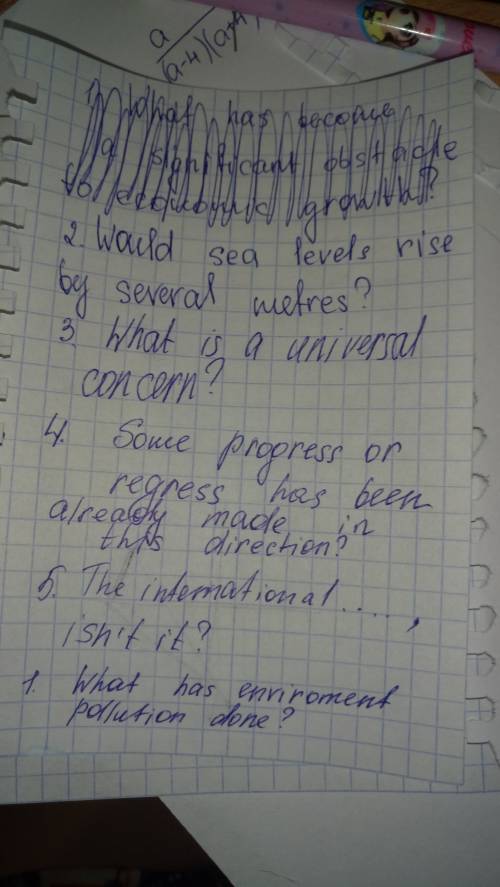 a
(a-4)(a+4)
1. What has become
a significant obstacle
to economic growth?
2. Would sea levels rise
by several metres?
3. What is a universal
concern?
4. Some progress or
regress has been
already made in
this direction?
5. The international .....,
isn't it?
1. What has enviroment
pollution done?